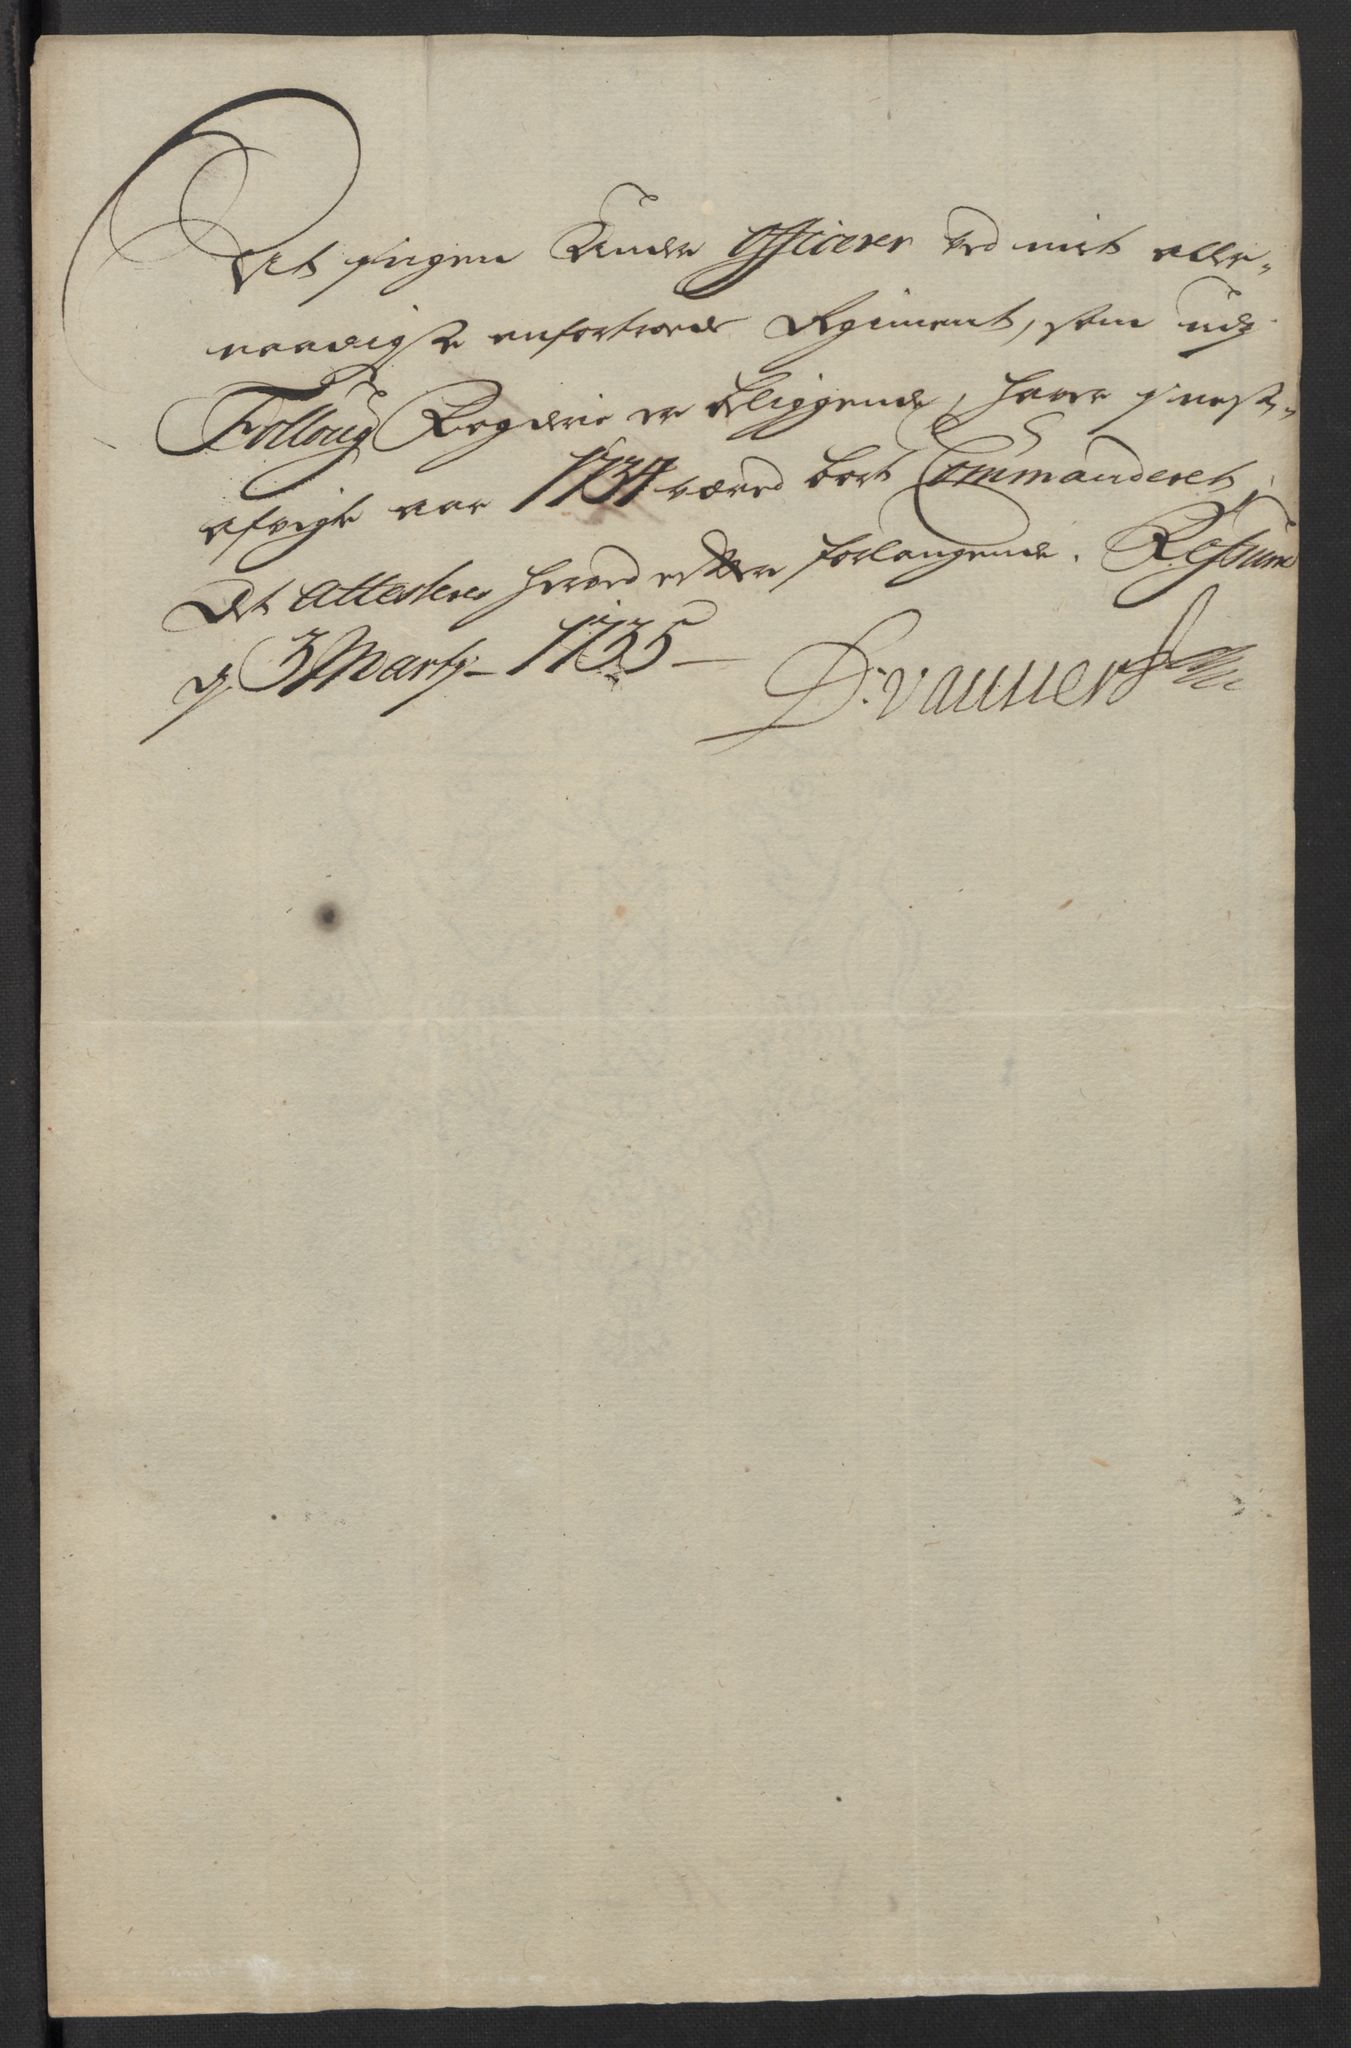 At ingen Under Officerer ved mit aller-
naadigst anfortroede Regiment, som udj
Folloug Fogderie er beliggende, haver i nest-
afvigte aar 1734 været bort Commanderet,
Det Attesteres herved efter forlangende.
d. 3 Marty 1735